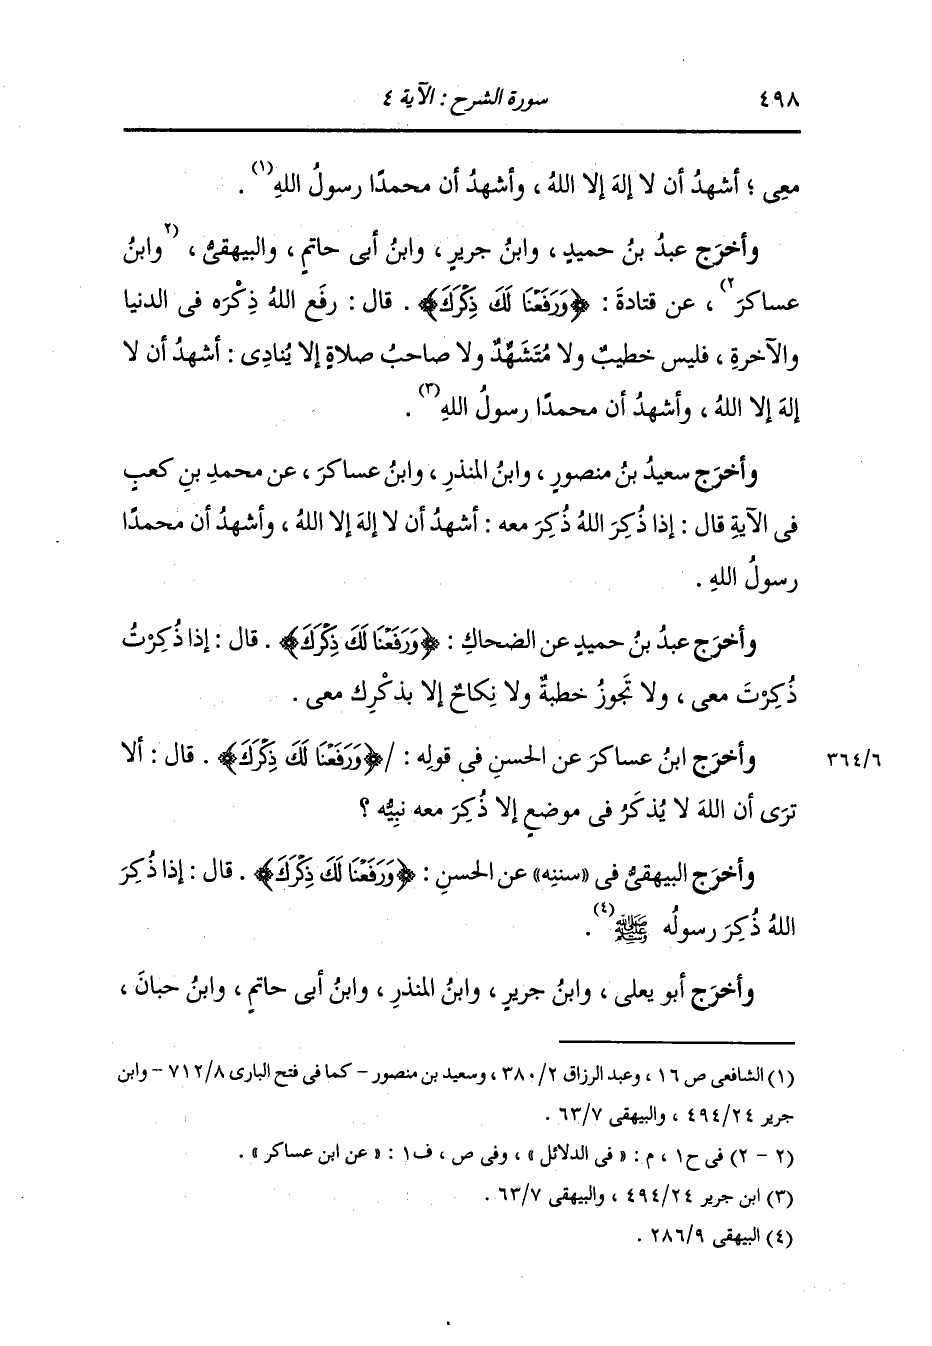 ٤٩٨ سورة الشرح : الآية ٤
معِى ؛ أشهدُ أن لا إلهَ إلا اللهُ ، وأشهدُ أن محمدًا رسولُ اللهِ(١) .
وأخرَج عبدُ بنُ حميدٍ ، وابنُ جريرٍ ، وابنُ أبى حاتمٍ ، والبيهقىُّ ، (٢وابنُ
عساكرَ٢) ، عن قتادةَ : ﴿وَرَفَعْنَا لَكَ ذِكْرَكَ﴾ . قال : رفَع اللهُ ذِكْرَه فى الدنيا
والآخرةِ ، فليس خطيبٌ ولا مُتَشَهِّدٌ ولا صاحبُ صلاةٍ إلا يُنادِى : أشهدُ أن لا
إلهَ إلا اللهُ ، وأشهدُ أن محمدًا رسولُ اللهِ(٣) .
وأخرَج سعيدُ بنُ منصورٍ ، وابنُ المنذرِ ، وابنُ عساكرَ ، عن محمدِ بنِ كعبٍ
فى الآيةِ قال : إذا ذُكِرَ اللهُ ذُكِرَ معه : أشهدُ أن لا إلهَ إلا اللهُ ، وأشهدُ أن محمدًا
رسولُ اللهِ .
وأخرَج عبدُ بنُ حميدٍ عن الضحاكِ : ﴿وَرَفَعْنَا لَكَ ذِكْرَكَ﴾ . قال : إذا ذُكِرْتُ
ذُكِرْتَ معى ، ولا تَجوزُ خطبةٌ ولا نِكاحٌ إلا بذكْرِك معى .
وأخرَج ابنُ عساكرَ عن الحسنِ فى قولِه : /﴿وَرَفَعْنَا لَكَ ذِكْرَكَ﴾ . قال : ألا ٣٦٤/٦
ترَى أن اللهَ لا يُذكَرُ فى موضعٍ إلا ذُكِرَ معه نبيُّه ؟
وأخرَج البيهقىُّ فى «سننِه» عن الحسنِ : ﴿وَرَفَعْنَا لَكَ ذِكْرَكَ﴾ . قال : إذا ذُكِرَ
اللهُ ذُكِرَ رسولُه ﷺ(٤) .
وأخرَج أبو يعلى ، وابنُ جريرٍ ، وابنُ المنذرِ ، وابنُ أبى حاتمٍ ، وابنُ حبانَ ،
(١) الشافعى ص ١٦ ، وعبد الرزاق ٣٨٠/٢ ، وسعيد بن منصور - كما فى فتح البارى ٧١٢/٨ - وابن
جرير ٤٩٤/٢٤ ، والبيهقى ٦٣/٧ .
(٢ - ٢) فى ح١ ، م : « فى الدلائل » ، وفى ص ، ف١ : « عن ابن عساكر » .
(٣) ابن جرير ٤٩٤/٢٤ ، والبيهقى ٦٣/٧ .
(٤) البيهقى ٢٨٦/٩ .